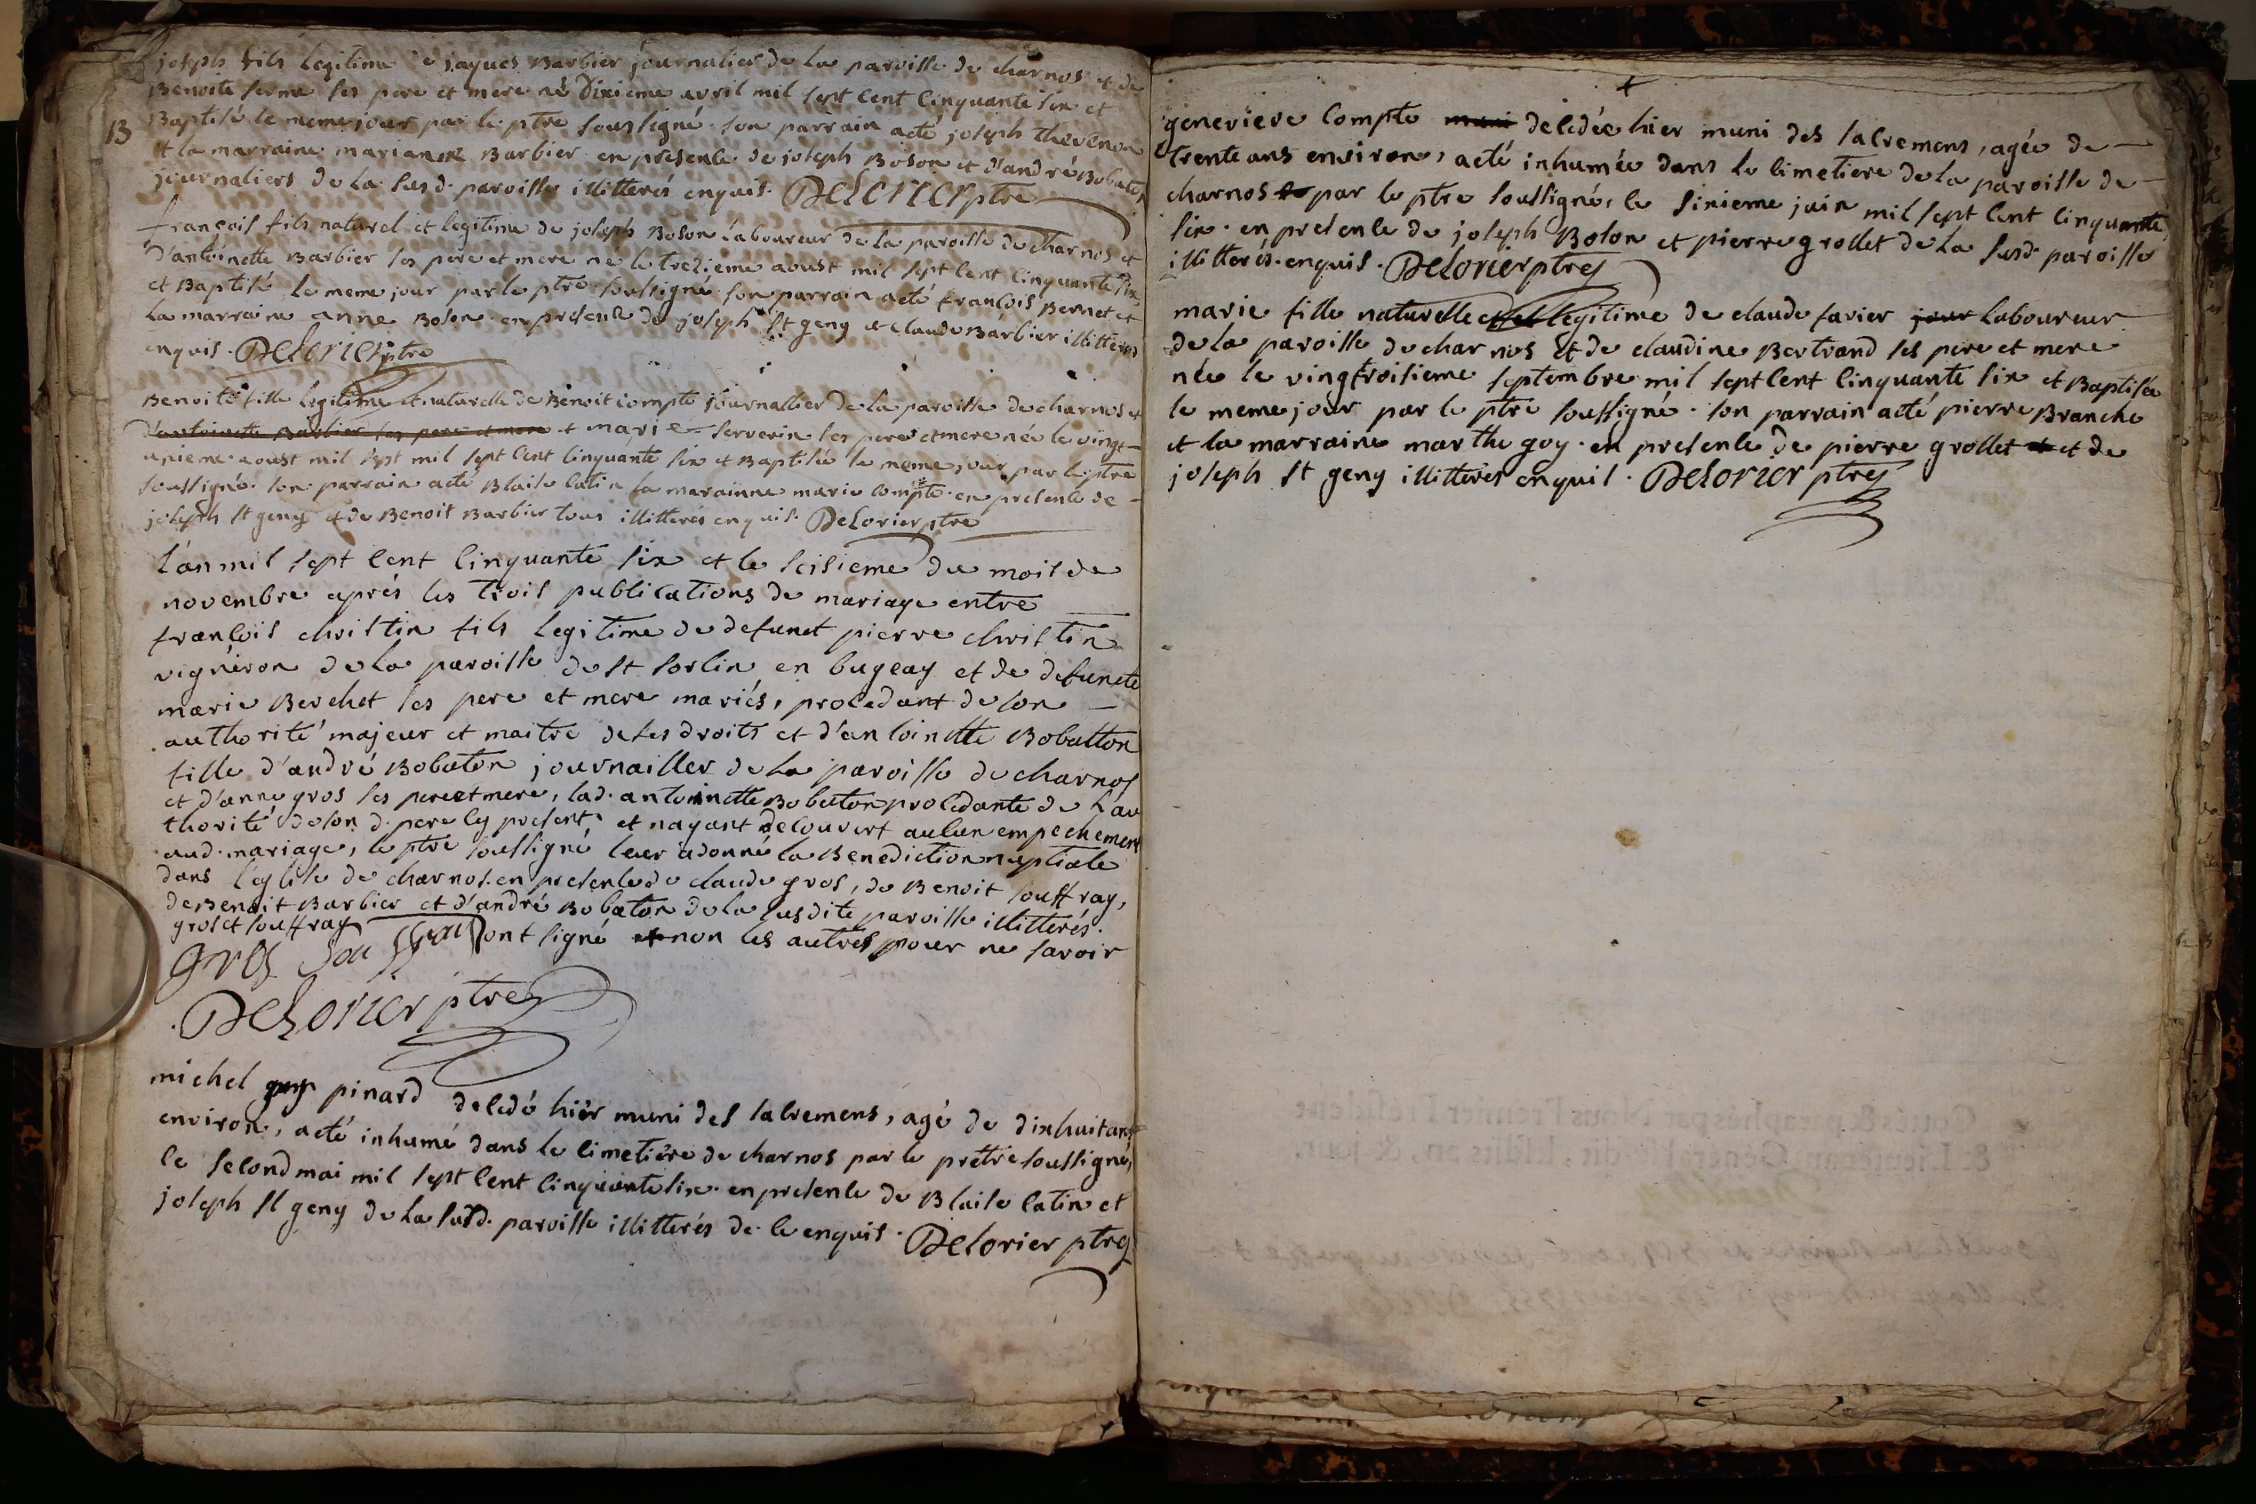 joseph fils legitime de jaques Barbier journalier de la paroisse de charnos et de
Benoite serme ses pere et mere né dixieme avril mil sept cent cinquante six et
13 Baptisé le meme jour par le ptre soussigné. son parrain acté joseph thevenon
et la marraine marianne Barbier. en presence de joseph Boson et d'andré Bobaton
journaliers de la susd. paroisse illitterés enquis. Delorier ptre
françois fils naturel et legitime de joseph Boson laboureur de la paroisse de charnos et
d'antoinette Barbier ses pere et mere né le trezieme aoust mil sept cent cinquante six
et Baptisé le meme jour par le ptre soussigné. son parrain acté françois Bernet et
la marraine anne Boson. en presence de joseph st geny et claude Barbier illitterés
enquis. Delorier ptre
Benoite fille legitime et naturelle de Benoit compte journallier de la paroisse de charnos et
d'antoinette Barbier ses pere et mere et marie serverin ses pere et mere née le vingt
unieme aoust mil sept mil sept cent cinquante six et Baptisée le meme jour par le ptre
soussigné. son parrain acté Blaise catin la marainne marie compte. en presence de
joseph st geny et de Benoit Barbier tous illitterés enquis. Delorier ptre
l'an mil sept cent cinquante six et le seisieme du mois de
novembre aprés les trois publications de mariage entre
françois christin fils legitime de defunct pierre christin
vigneron de la paroisse de st sorlin en bugeay et de defuncte
marie Berchet ses pere et mere mariés, procedant de son
authorité majeur et maitre de ses droits et d'antoinette Bobatton
fille d'andré Bobaton journailler de la paroisse de charnos
et d'anne gros ses pere et mere, lad. antoinette Bobaton procedante de l'au
thorité de son d. pere cy present. et nayant decouvert aucun empechement
aud. mariage, le ptre soussigné leur adonné la Benediction nuptiale
dans l'eglise de charnos. en presence de claude gros, de Benoit souffray,
de Benoit Barbier et d'andré Bobaton de la susdite paroisse illitterés.
gros et souffray ont signé et non les autres pour ne savoir
gros Souffray
Delorier ptre
michel pinard decedé hier muni des sacremens, agé de dixhuit ans
environ, acté inhumé dans le cimetiére de charnos par le prêtre soussigné,
le second mai mil sept cent cinquante six. en presence de Blaise catin et
joseph st geny de la susd. paroisse illitterés de ce enquis. Delorier ptre
genevieve compte muni decedée hier muni des sacremens, agée de
trente ans environ, acté inhumée dans le cimetiere de la paroisse de
charnos par le ptre soussigné, le sixieme juin mil sept cent cinquante
six. en presence de joseph Boson et pierre grollet de la susd. paroisse
illitterés. enquis. Delorier ptre
marie fille naturelle et legitime de claude favier jour laboureur
de la paroisse de charnos et de claudine Bertrand ses pere et mere
née le vingtroisieme septembre mil sept cent cinquante six et Baptisée
le meme jour par le ptre soussigné. son parrain acté pierre Branche
et la marraine marthe goy. en presence de pierre grollet et et de
joseph st geny illitterés enquis. Delorier ptre